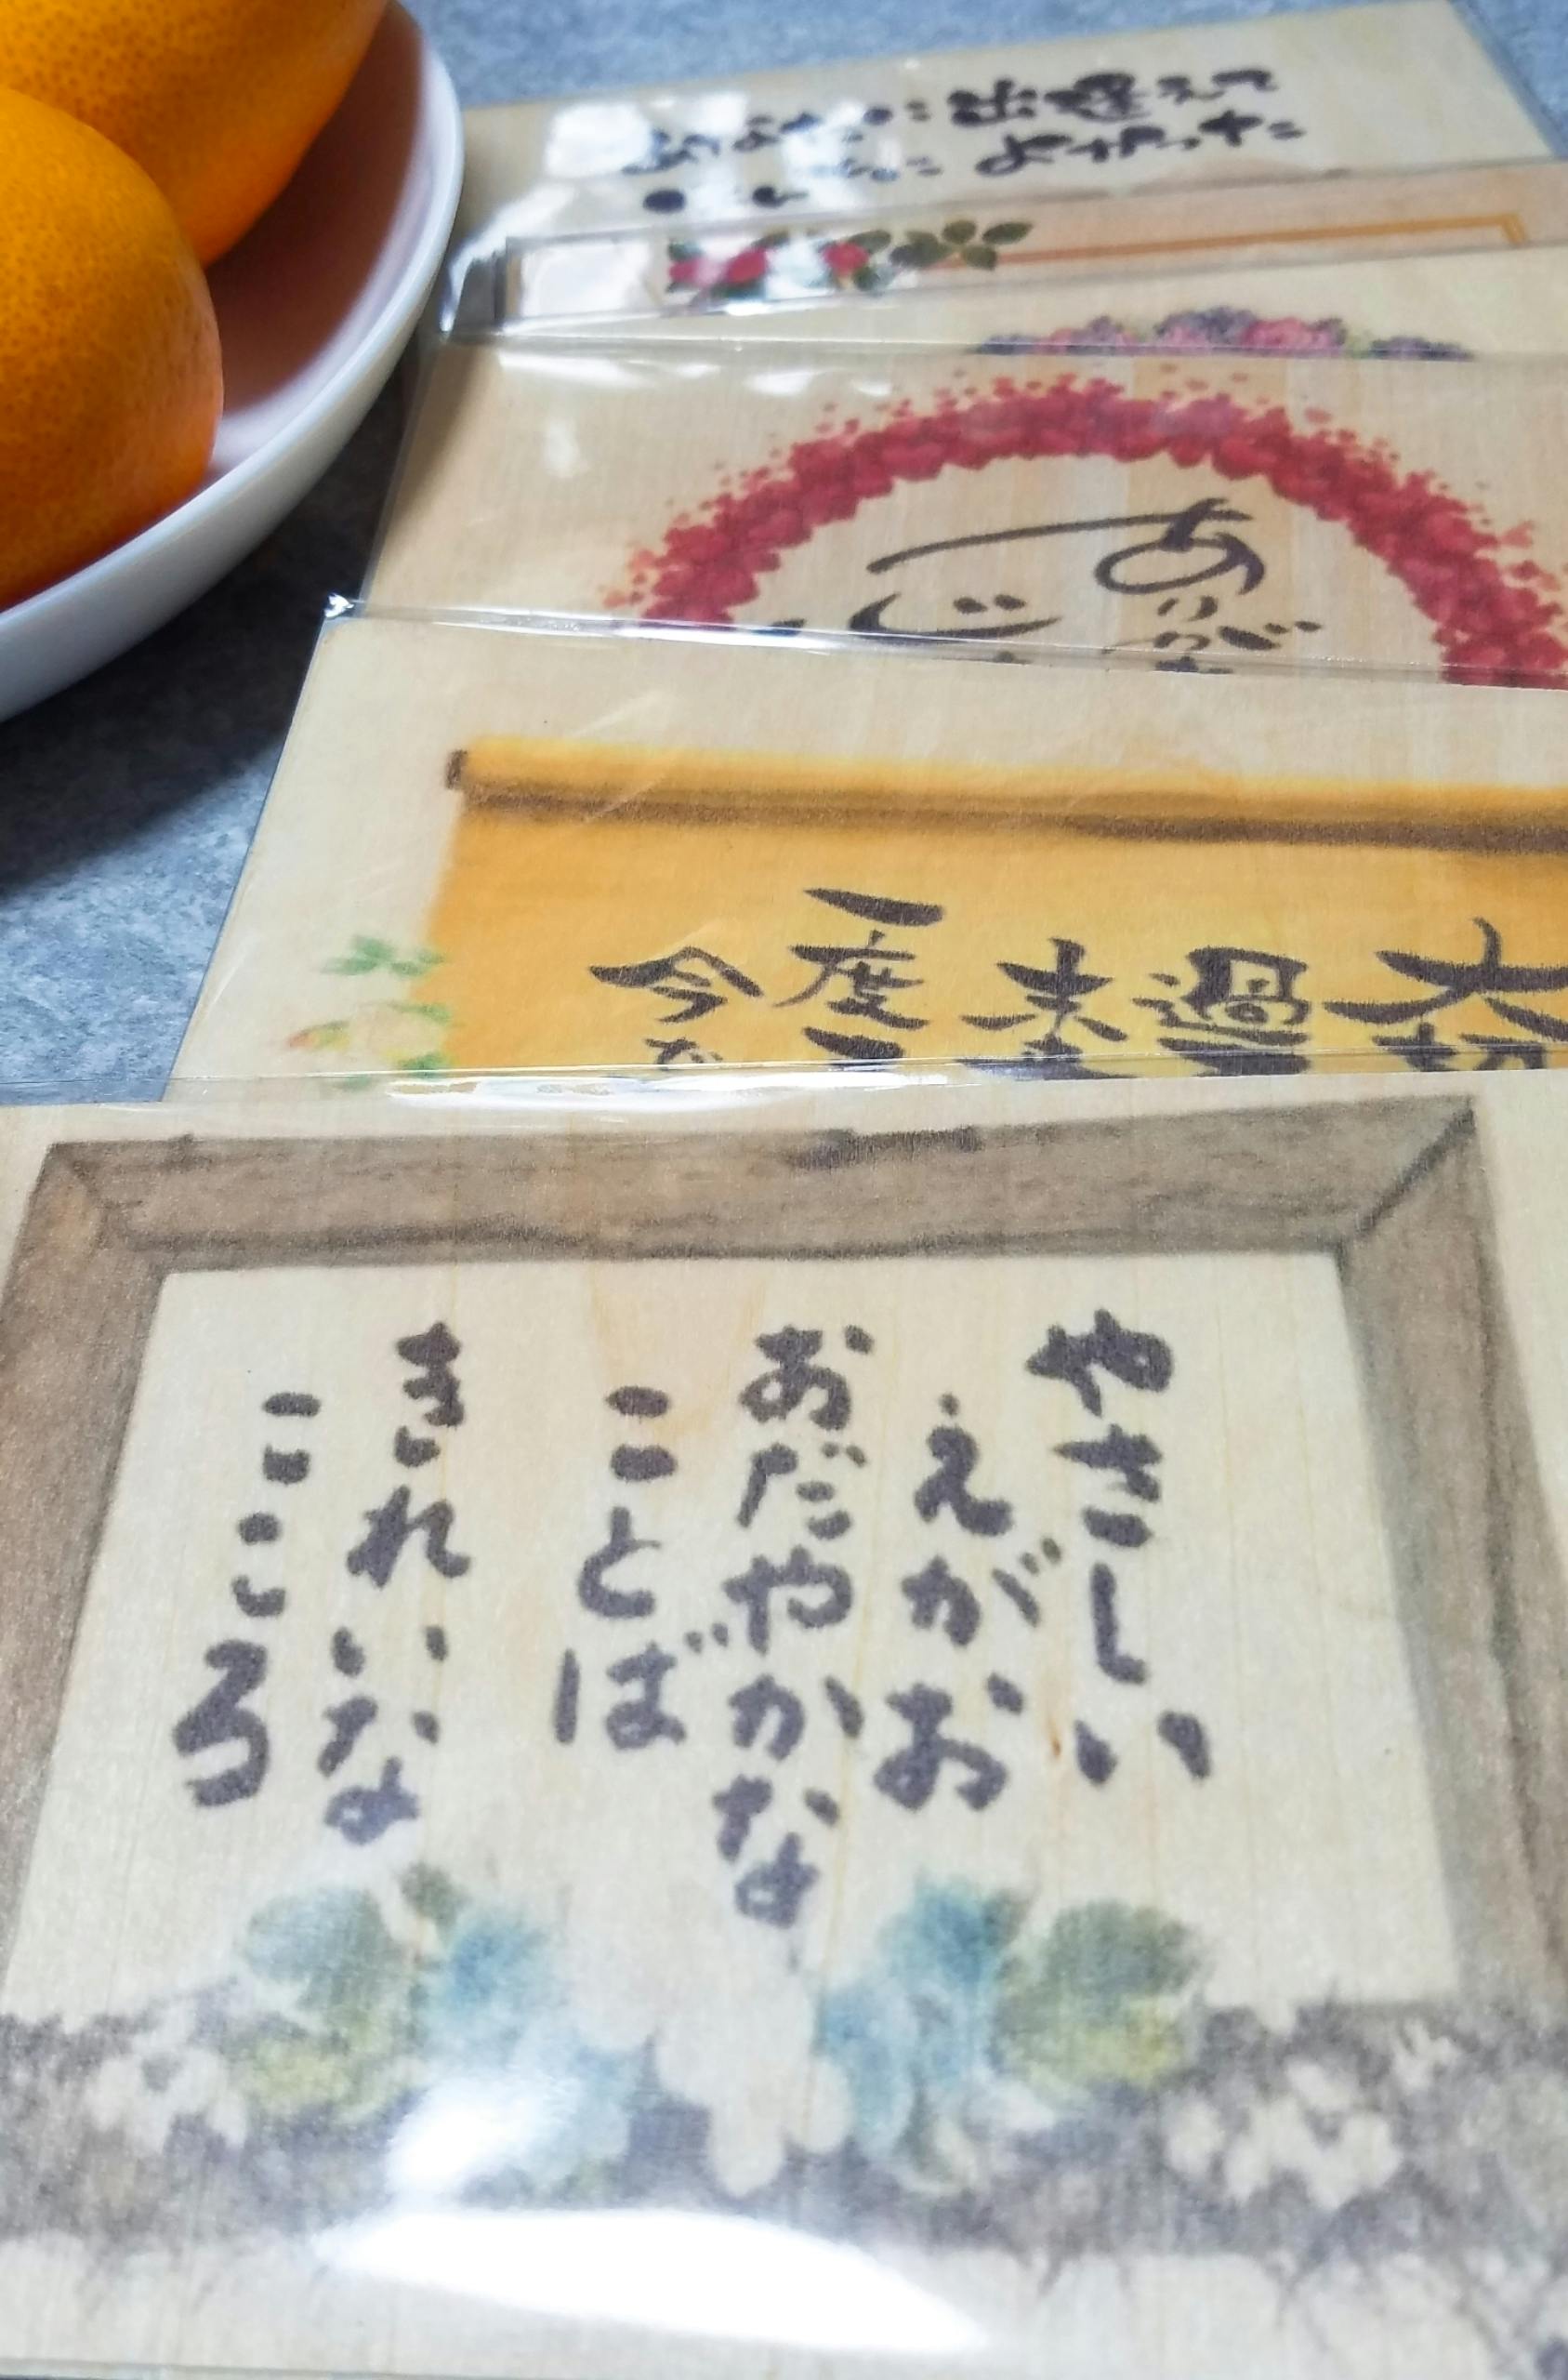 やさしい
えがお
おだやかな
ことば
きれいな
こころ
大切
過
未
一度
今
ありがと
あなたに出逢えて
よかった